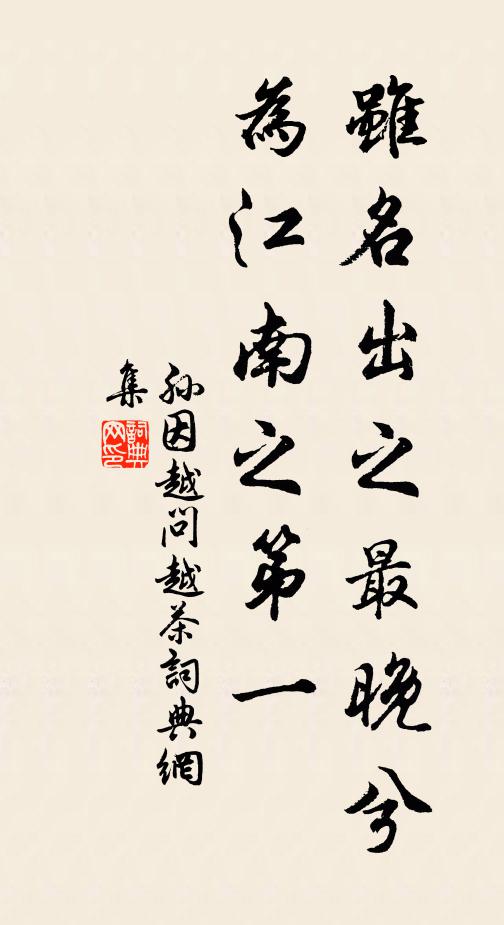 雖名出之最晚兮
為江南之第一
孫因越問越茶詞典網
集
詞典
网印